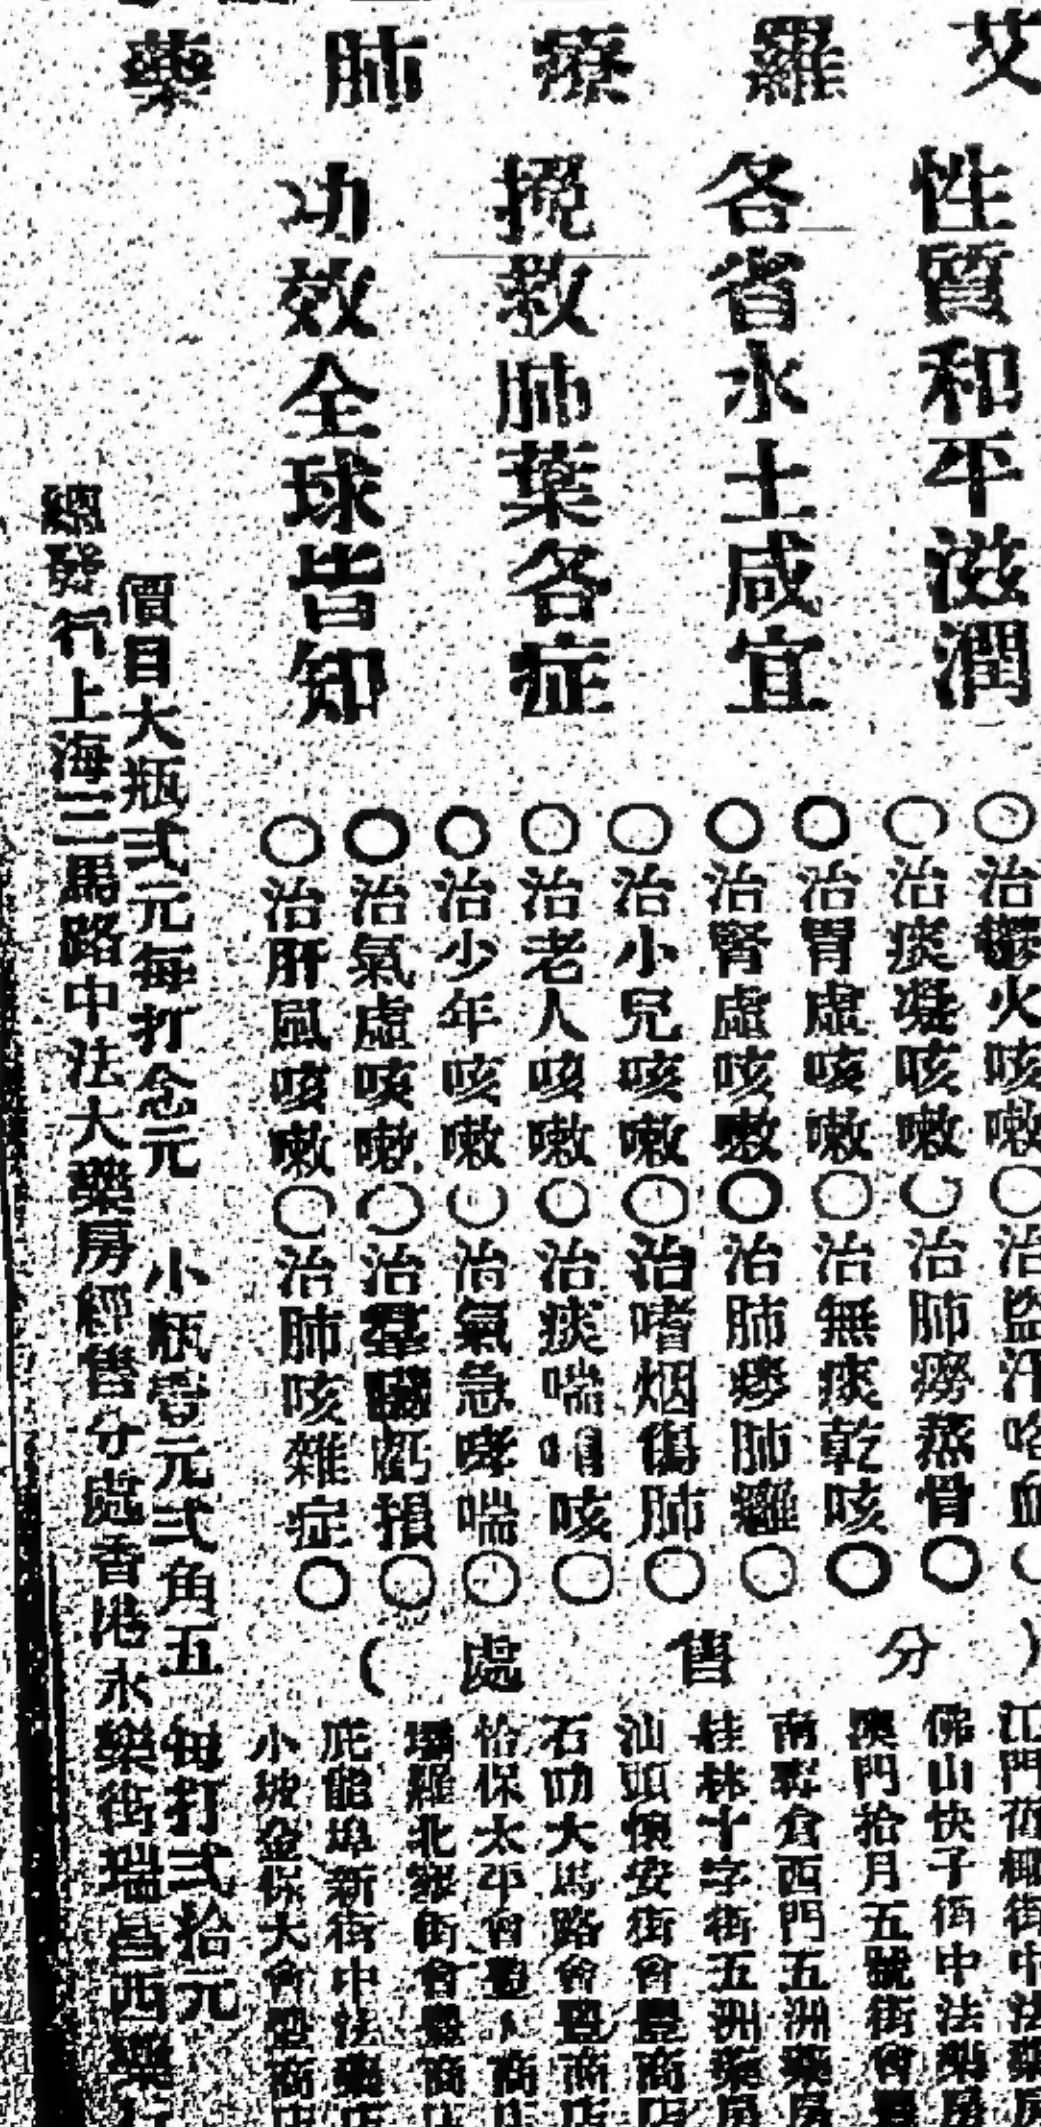 艾羅療肺藥
性質和平滋潤
各省水土咸宜
挽救肺葉各症
功效全球皆知
○治鬱火咳嗽○治盜汗咯血○
○治痰凝咳嗽○治肺癆蒸骨○
○治胃虛咳嗽○治無痰乾咳○
○治腎虛咳嗽○治肺痿肺癰○
○治小兒咳嗽○治嗜烟傷肺○
○治老人咳嗽○治痰喘嗆咳○
○治少年咳嗽○治氣急哮喘○
○治氣虛咳嗽○治羣臟虧損○
○治肝風咳嗽○治肺咳雜症○
(分售處)
江門舊街中法藥房
佛山快子街中法藥房
澳門拾月五號街會
南寧倉西門五洲藥房
桂林十字街五洲藥房
汕頭懷安街會豐商店
石叻大馬路會豐商店
怡保太平會豐商店
壩羅北街會豐商店
庇能埠新街中法藥店
小坡金保大會豐商店
價目大瓶式元每打念元 小瓶壹元弍角五 每打弍拾元
總發行上海三馬路中法大藥房經售分處香港永樂街瑞昌西藥行